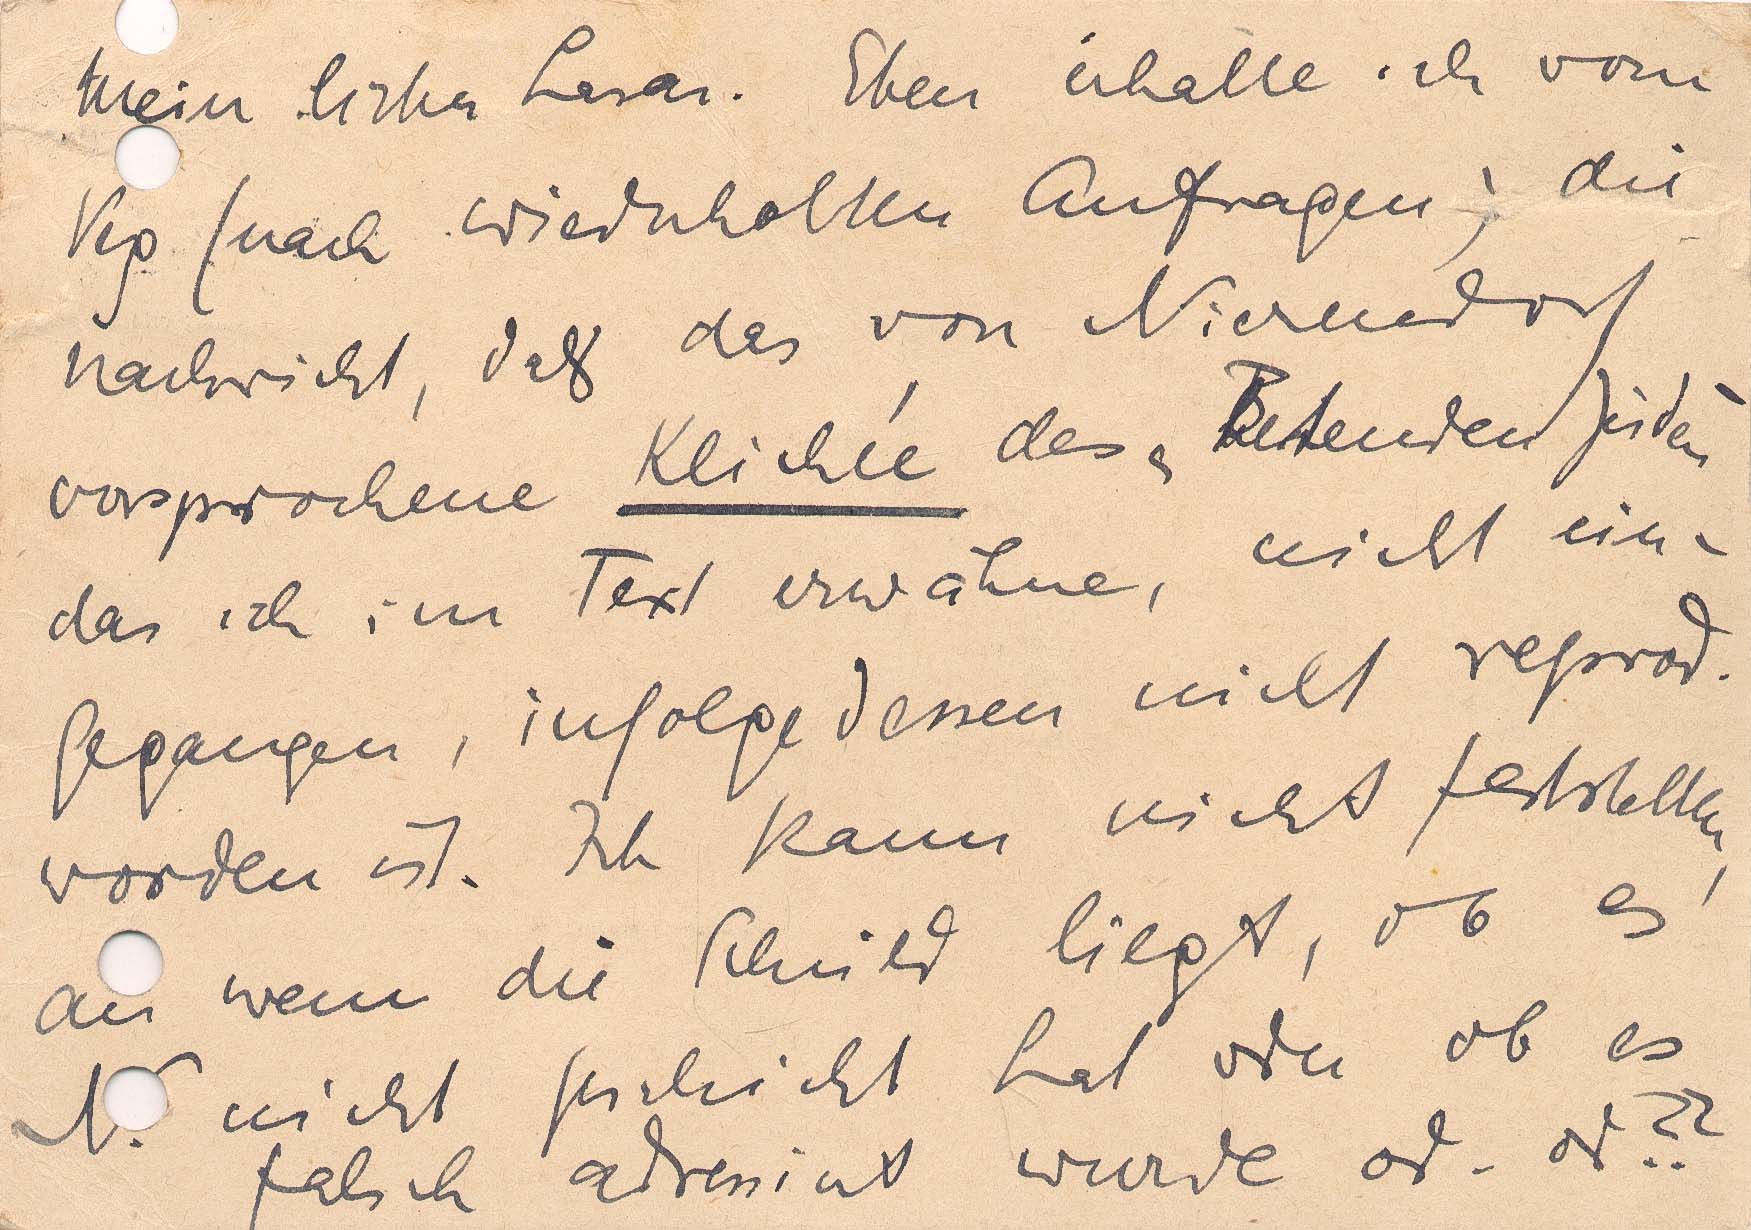 Mein lieber Lasar. Eben erhalte ich vom
Verp (nach wiederholten Anfragen) die
Nachricht, daß das von Nierendorf
versprochene Klichée des „Betenden Juden"
das ich im Text erwähne, nicht ein-
gegangen, infolgedessen nicht reprod.
worden ist. Ich kann nicht feststellen,
an wem die Schuld liegt, ob es
N. nicht geschickt hat oder ob es
falsch adressiert wurde od. od??